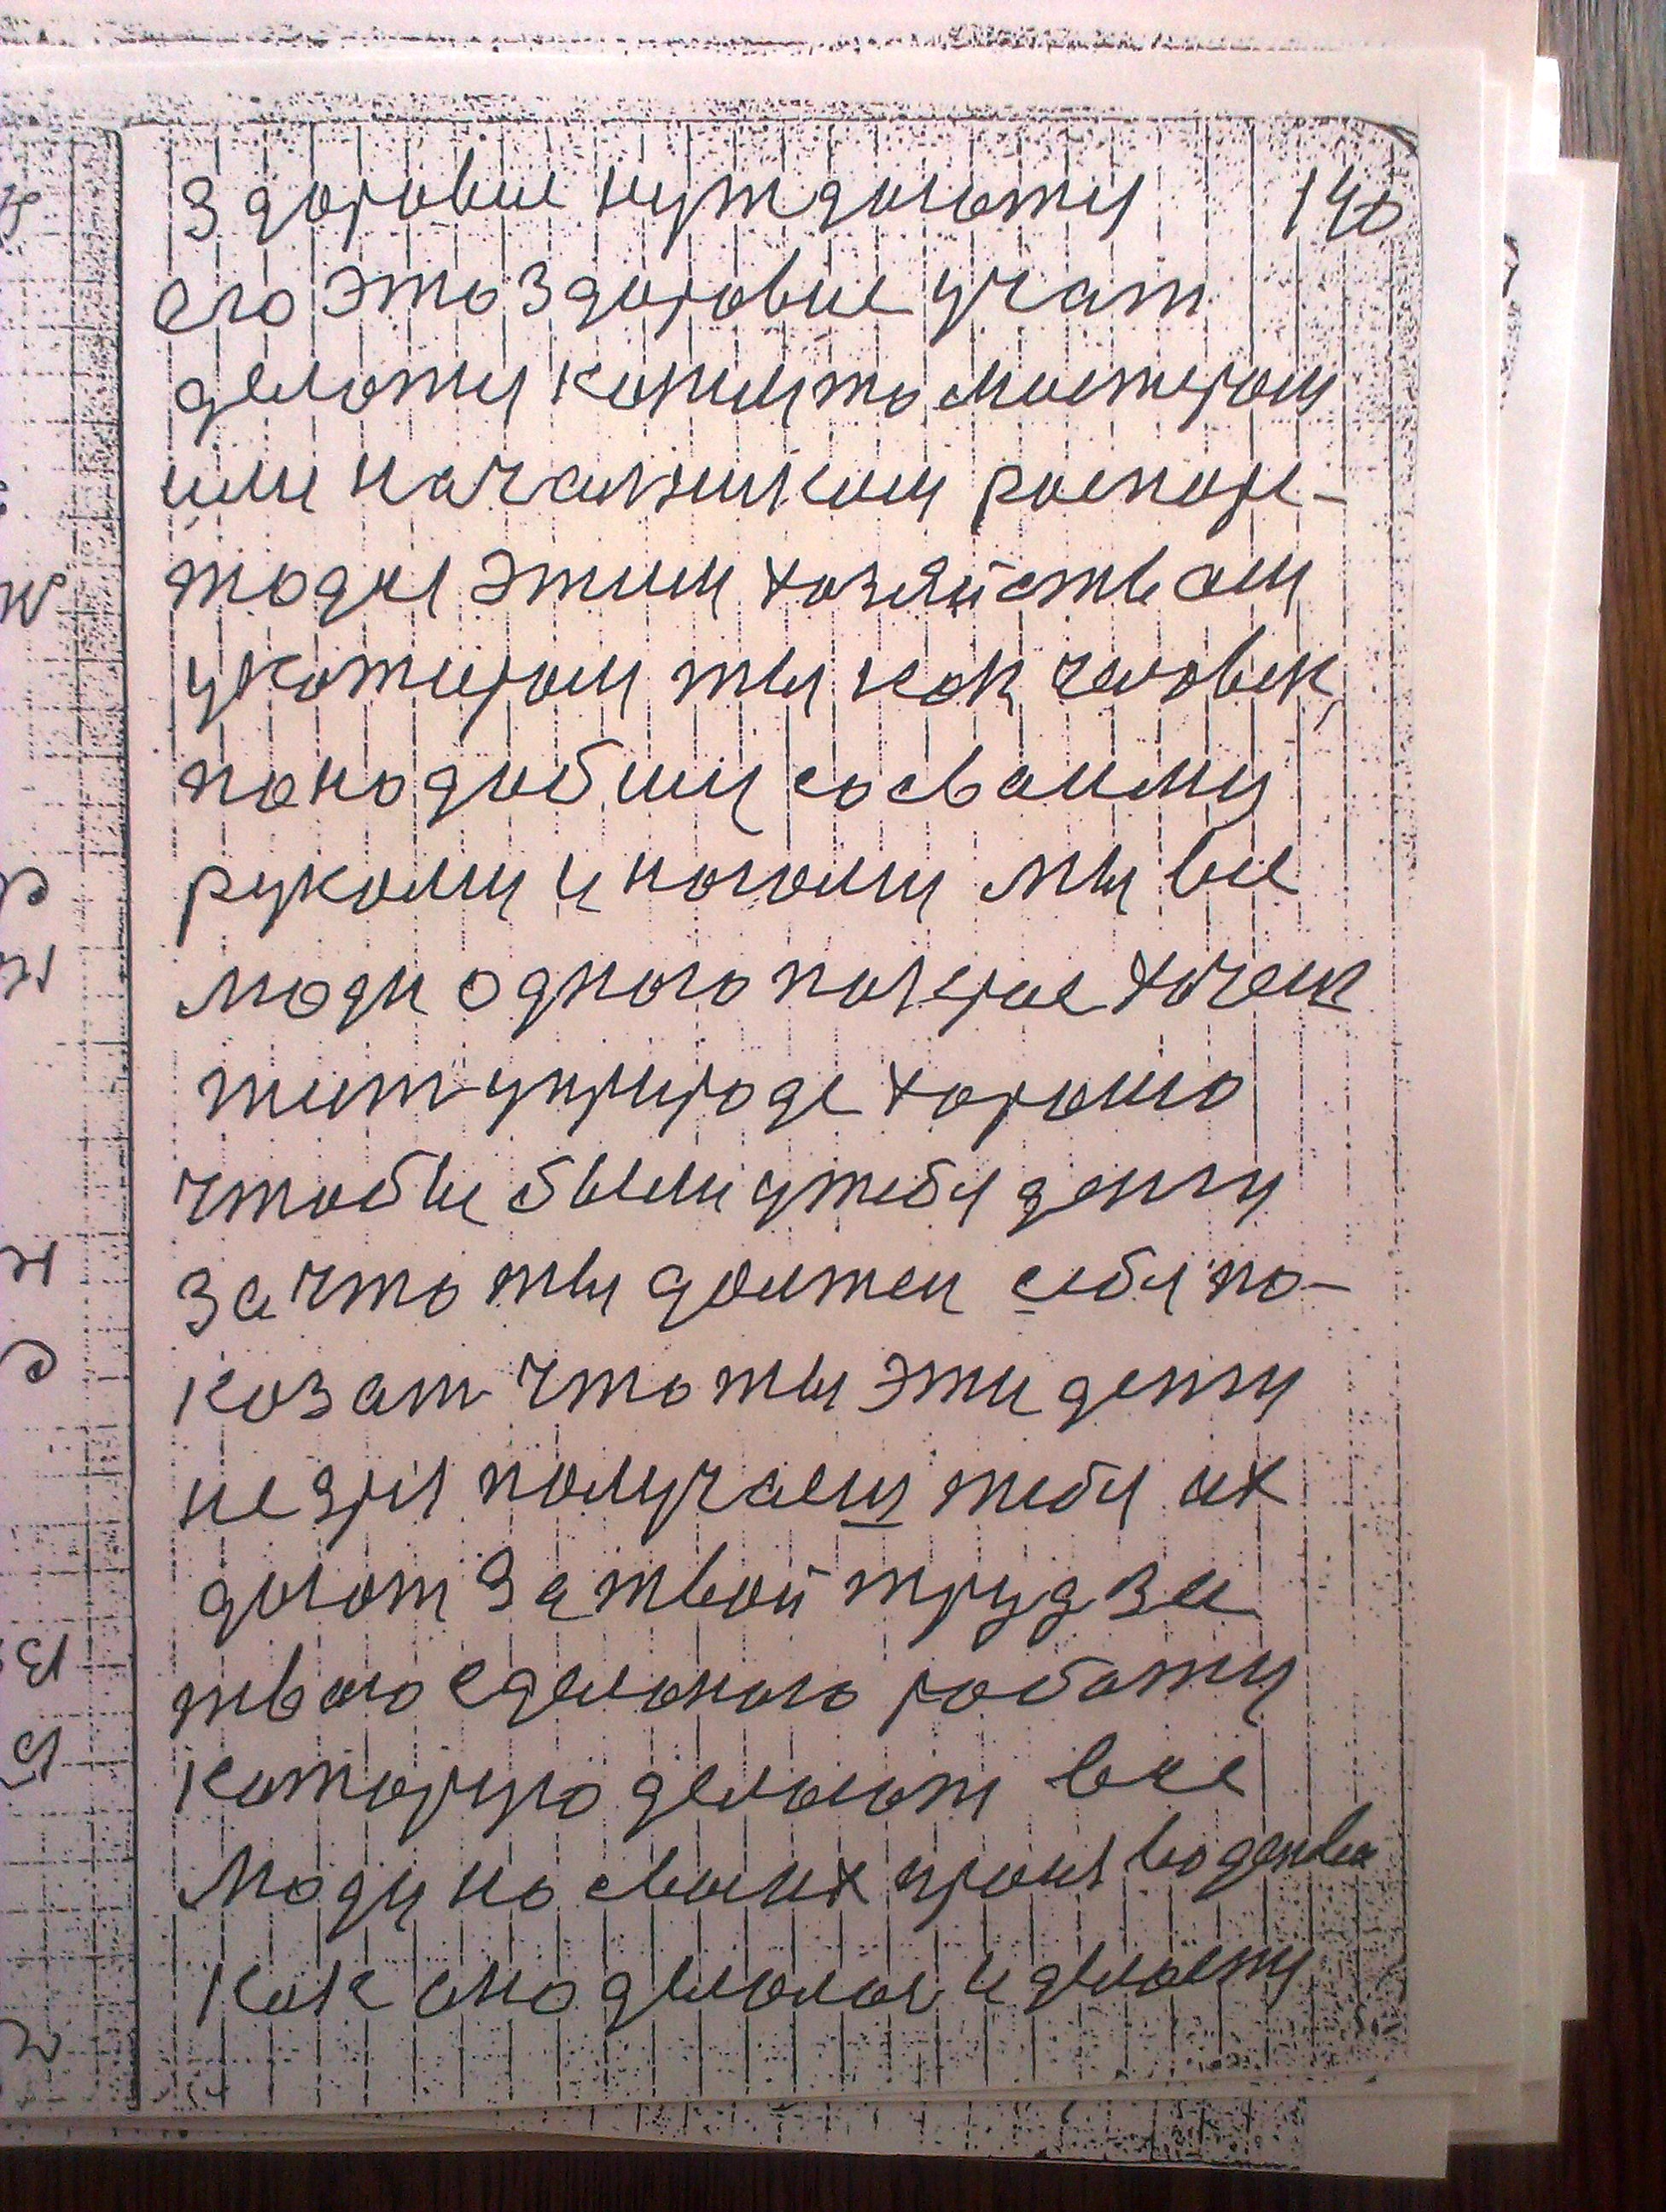 здоровие нуждаюти 140
его это здоровие учат
делоти каким то мастером
или началником роспоре-
тодся этим хозяйством
укотором ты как человек
понадобиш со своими
рукоми и ногоми мы все
люди одного похараб хочем
жит уприроде хорошо
чтобы были утебя денги
за что ты должен себя по-
козат что ты эти денги
не зря получаеш тебя их
доют за твой труд за
твою сделоною роботу
которую делоют все
люди но своих
как оно делолос и